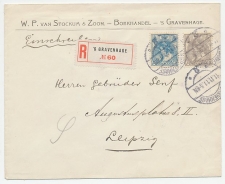 W. P. VAN STOCKUM & ZOON. – BOEKHANDEL – 'S GRAVENHAGE.
Einschreiben
R 'S GRAVENHAGE
No 60
Herren Gebrüder Senf
Augustusplatz
Leipzig